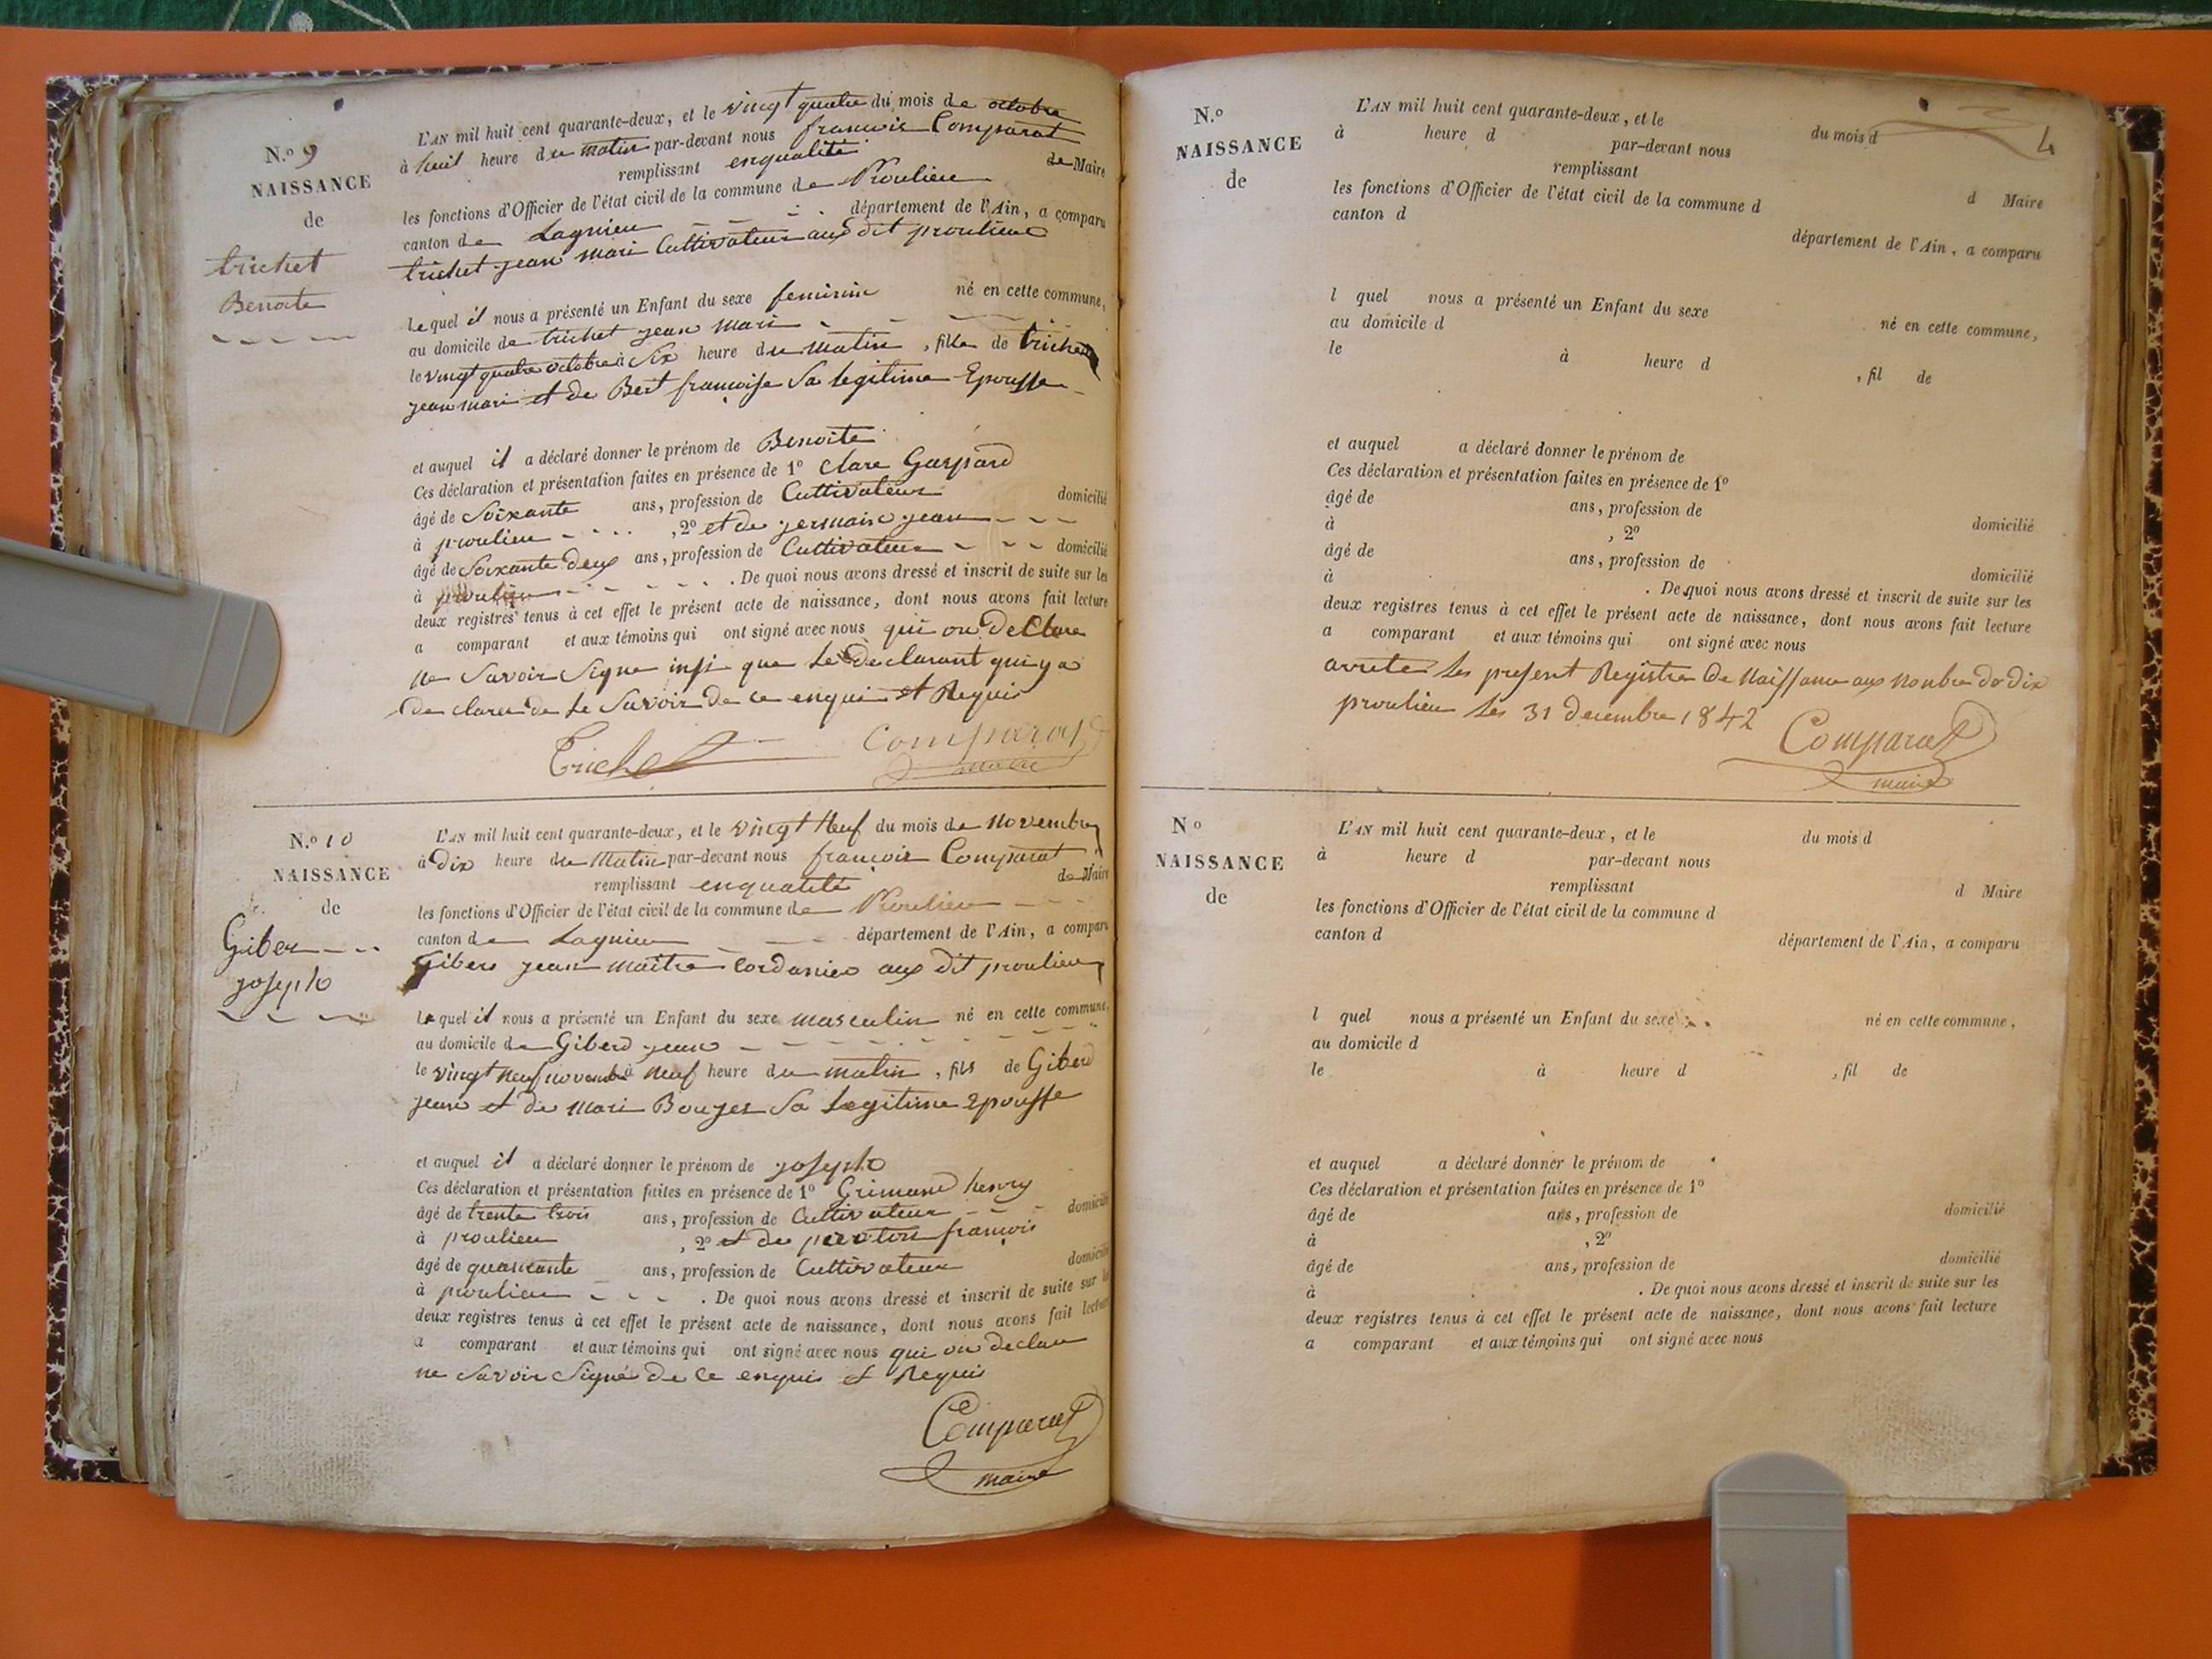 N.o 9
NAISSANCE
de
trichet
Benoite
L'AN mil huit cent quarante-deux, et le vingt quatre du mois de octobre
à huit heure du matin par-devant nous francois Comparat
remplissant enqualité de Maire
les fonctions d'Officier de l'état civil de la commune de Proulieu
canton de Lagnieu département de l'Ain, a comparu
trichet jean mari Cultivateur aux dit proulieu
lequel il nous a présenté un Enfant du sexe feminin né en cette commune,
au domicile de trichet jean mari
le vingt quatre octobre à six heure du matin, fille de trichet
jean mari et de Bert francoise sa legitime Epousse
et auquel il a déclaré donner le prénom de Benoite
Ces déclaration et présentation faites en présence de 1o Clare Gaspard
âgé de soixante ans, profession de Cultivateur domicilié
à proulieu , 2o et de jermain jean
âgé de soixante deux ans, profession de Cultivateur domicilié
à proulieu . De quoi nous avons dressé et inscrit de suite sur les
deux registres tenus à cet effet le présent acte de naissance, dont nous avons fait lecture
a comparant et aux témoins qui ont signé avec nous qui on declare
ne savoir signe insi que le declarant qui y a
declarer de le savoir de ce enquis et Requis
Trichet Comparat
maire
N.o 10
NAISSANCE
de
Giber
joseph
L'AN mil huit cent quarante-deux, et le vingt neuf du mois de novembre
à dix heure du matin par-devant nous francois Comparat
remplissant enqualité de Maire
les fonctions d'Officier de l'état civil de la commune de Proulieu
canton de Lagnieu département de l'Ain, a comparu
jean maitre Cordonier aux dit proulieu
lequel il nous a présenté un Enfant du sexe masculin né en cette commune,
au domicile de Giberd jean
le vingt neuf novembre à neuf heure du matin, fils de Giberd
jean et de mari Bouyer sa legitime Epousse
et auquel il a déclaré donner le prénom de joseph
Ces déclaration et présentation faites en présence de 1o Grimand henry
âgé de trente trois ans, profession de Cultivateur domicilié
à proulieu , 2o et de francois
âgé de quarante ans, profession de Cultivateur domicilié
à proulieu . De quoi nous avons dressé et inscrit de suite sur les
deux registres tenus à cet effet le présent acte de naissance, dont nous avons fait lecture
a comparant et aux témoins qui ont signé avec nous qui on declare
ne savoir signé de ce enquis et Requis
Comparat
maire
4
N.o
NAISSANCE
de
L'AN mil huit cent quarante-deux, et le du mois d
à heure d par-devant nous
remplissant d Maire
les fonctions d'Officier de l'état civil de la commune d
canton d département de l'Ain, a comparu
l quel nous a présenté un Enfant du sexe né en cette commune,
au domicile d
le à heure d , fil de
et auquel a déclaré donner le prénom de
Ces déclaration et présentation faites en présence de 1o
âgé de ans, profession de domicilié
à , 2o
âgé de ans, profession de domicilié
à . De quoi nous avons dressé et inscrit de suite sur les
deux registres tenus à cet effet le présent acte de naissance, dont nous avons fait lecture
a comparant et aux témoins qui ont signé avec nous
arrete les present Registre de Naissance aux nombre de dix
proulieu les 31 decembre 1842
Comparat
maire
No
NAISSANCE
de
L'AN mil huit cent quarante-deux, et le du mois d
à heure d par-devant nous
remplissant d Maire
les fonctions d'Officier de l'état civil de la commune d
canton d département de l'Ain, a comparu
l quel nous a présenté un Enfant du sexe né en cette commune,
au domicile d
le à heure d , fil de
et auquel a déclaré donner le prénom de
Ces déclaration et présentation faites en présence de 1o
âgé de ans, profession de domicilié
à , 2o
âgé de ans, profession de domicilié
à . De quoi nous avons dressé et inscrit de suite sur les
deux registres tenus à cet effet le présent acte de naissance, dont nous avons fait lecture
a comparant et aux témoins qui ont signé avec nous